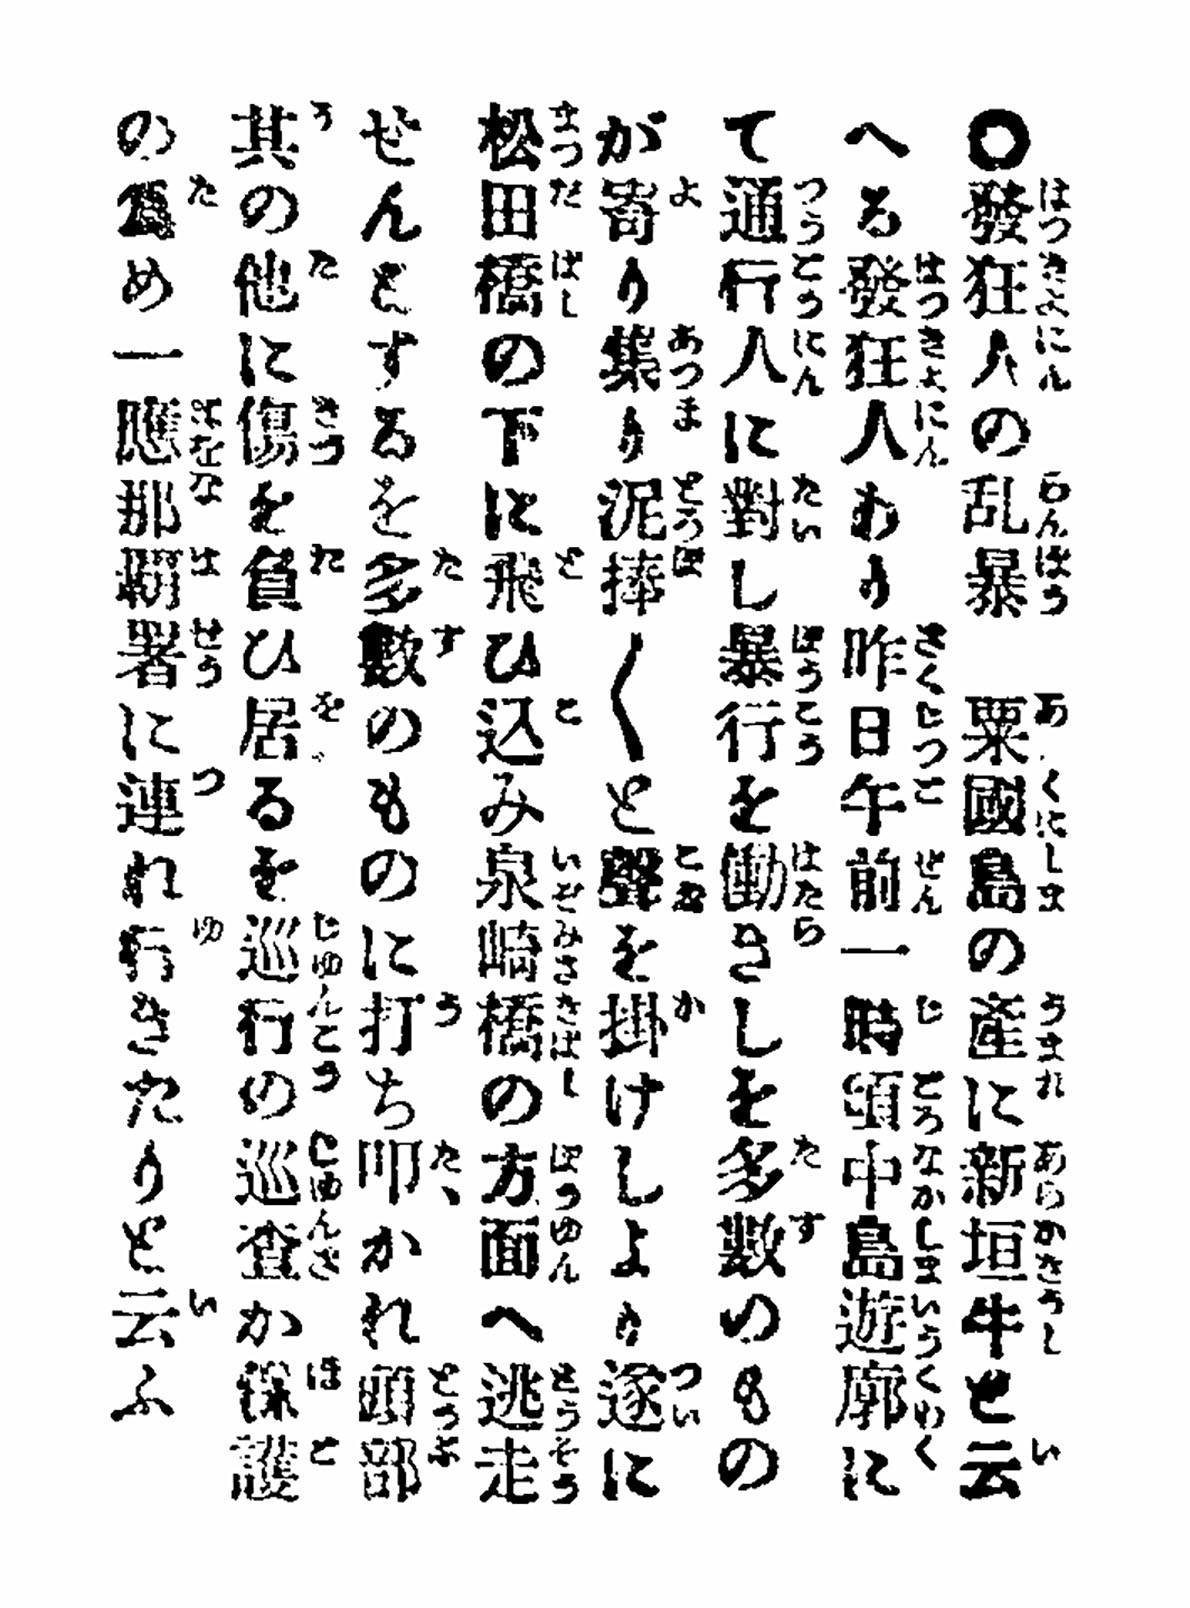 〇發狂人の乱暴　粟國島の產に新垣牛と云
へる發狂人わり昨日午前一時頃中島遊廓に
て通行人に對し暴行を働きしを多數のもの
が寄り集り泥捧〱と聲を掛けしより遂に
松田橋の下に飛ひ込み泉崎橋の方面へ逃走
せんとするを多數のものに打ち叩かれ頭部
其の他に傷を負ひ居るを巡行の巡査か保護
の爲め一應那覇署に連れ行きたりと云ふ